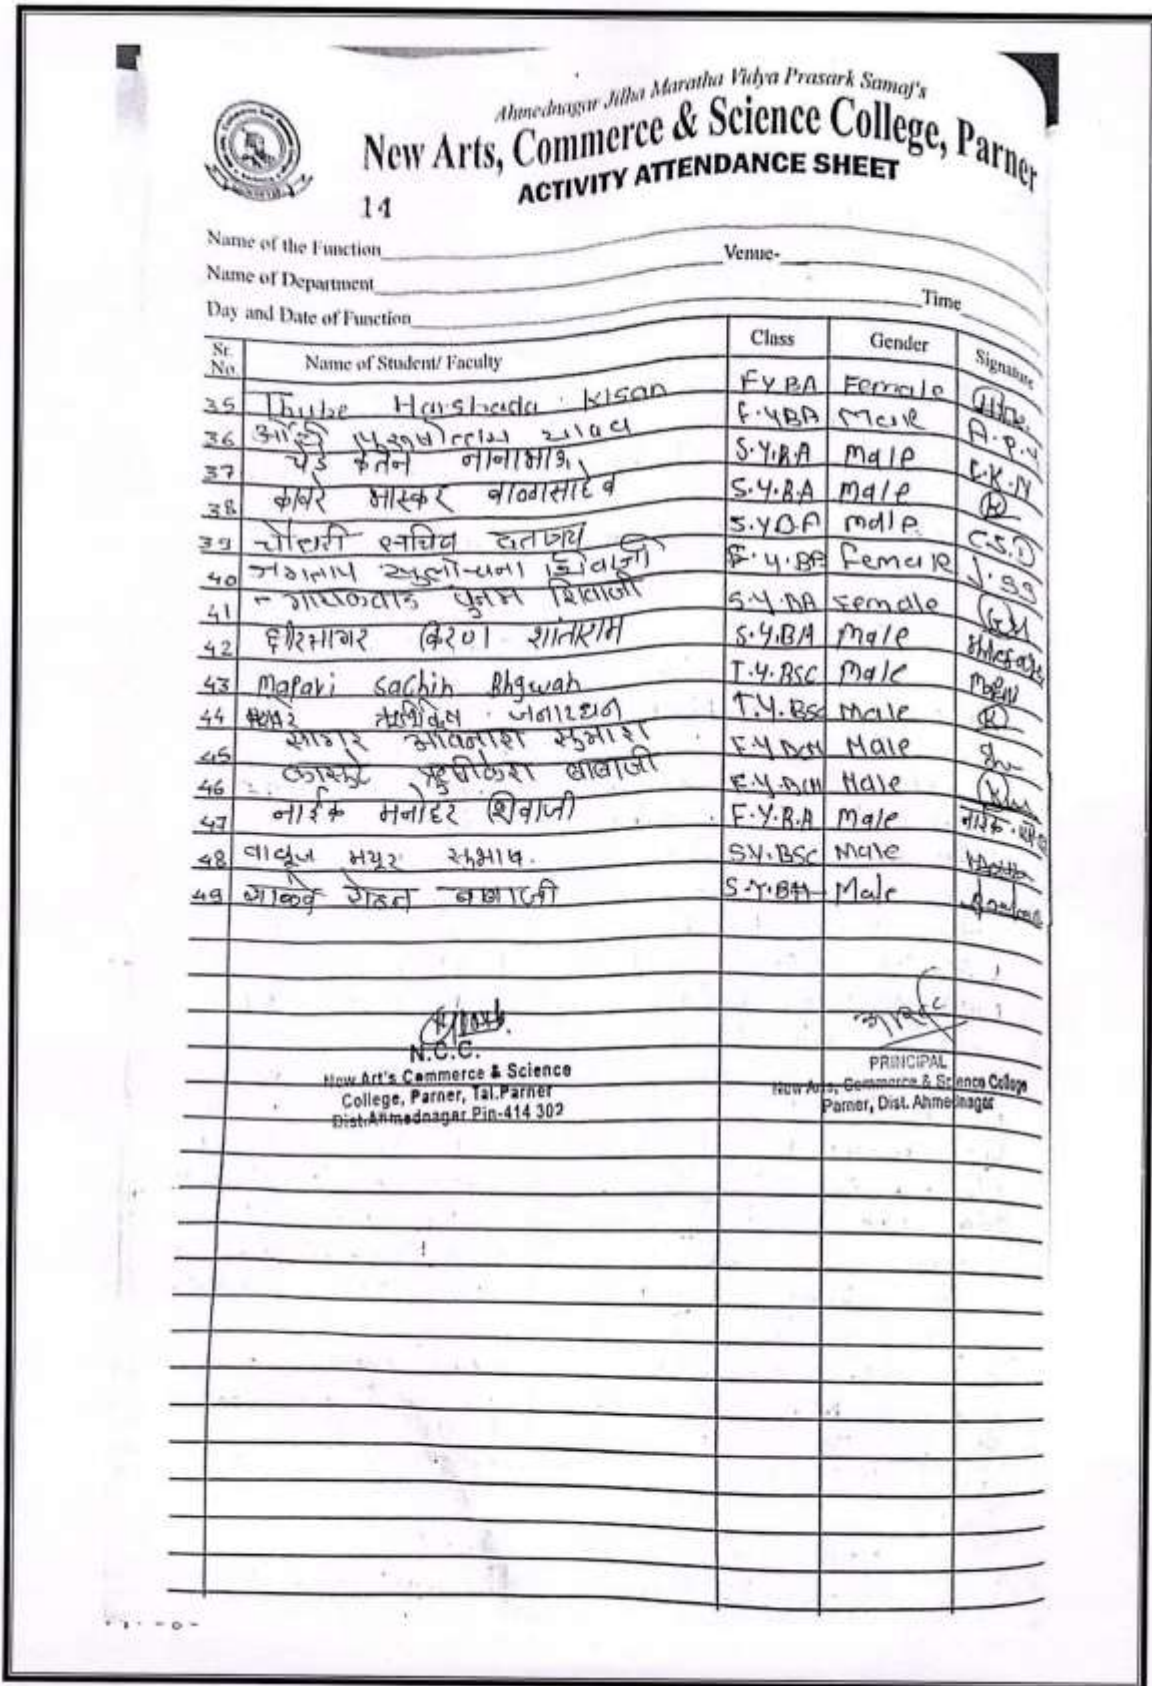 Ahmednagar Jilha Maratha Vidya Prasark Samaj's
New Arts, Commerce & Science College, Parner
ACTIVITY ATTENDANCE SHEET
14
Name of the Function Venue-
Name of Department
Day and Date of Function Time
Sr. No. Name of Student/ Faculty Class Gender Signature
35 Thube Harshada Kisan F Y BA Female
36 F.YBA Male A.P.Y
37 चेडे केतन नानाभाऊ S.Y.B.A male C.K.N
38 कावरे भास्कर बाळासाहेब S.Y.B.A Male
39 चौधरी सचिन दत्तात्रय S.Y.B.A male C.S.D
40 जगताप सुलोचना शिवाजी F.Y.BA female J.SS
41 गायकवाड पुनम शिवाजी S.Y.BA Female
42 क्षीरसागर किरण शांताराम S.Y.BA Male
43 Mapari Sachin Bhgwan T.Y.BSC Male
44 जनारधन T.Y.BSC Male
45 सागर अविनाश Male
46 ऋषीकेश बाबाजी Male
47 नाईक मनोहर शिवाजी F.Y.B.A Male नाईक
48 वाळूंज मयूर सुभाष. SY.BSC Male
49 साळवे रोहन बबाजी Male
N.C.C.
New Art's Commerce & Science
College, Parner, Tal.Parner
Dist.Ahmednagar Pin-414 302
PRINCIPAL
New Arts, Commerce & Science College
Parner, Dist. Ahmednagar